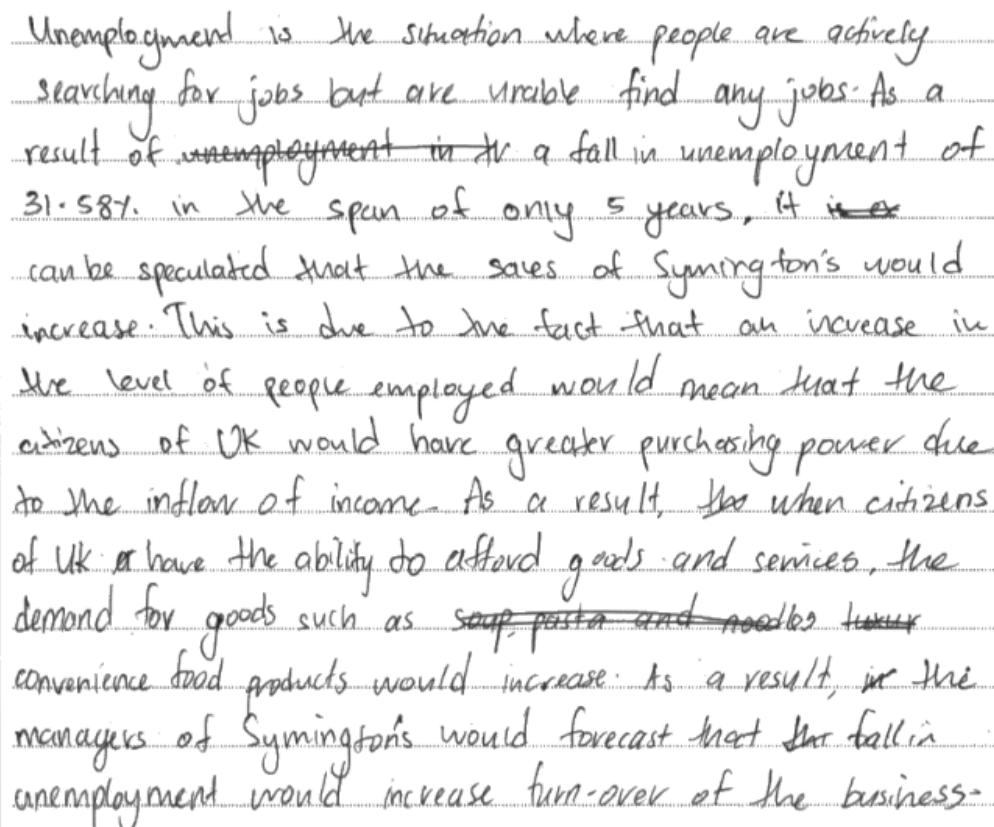 Unemployment is the situation where people are actively
searching for jobs but are unable find any jobs. As a
result of ~~unemployment in~~ a fall in unemployment of
31.58% in the span of only 5 years, it ~~is~~
can be speculated that the sales of Symington's would
increase. This is due to the fact that an increase in
the level of people employed would mean that the
citizens of UK would have greater purchasing power due
to the inflow of income. As a result, when citizens
of UK have the ability to afford goods and services, the
demand for goods such as ~~soup, pasta and noodles~~
convenience food products would increase. As a result, the
managers of Symington's would forecast that fall in
unemployment would increase turn-over of the business.